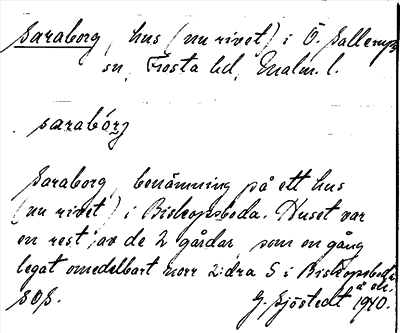 Saraborg, hus (nu rivet) i Ö. Sallerups
sn, Frosta hd, Malm. l.
sarabórg
Saraborg, benämning på ett hus
(nu rivet) i Biskopsboda. Huset var
en rest av de 2 gårdar, som en gång
legat omedelbart norr 2:dra S i Biskopsboda
å ek.
SOS. G. Sjöstedt 1940.